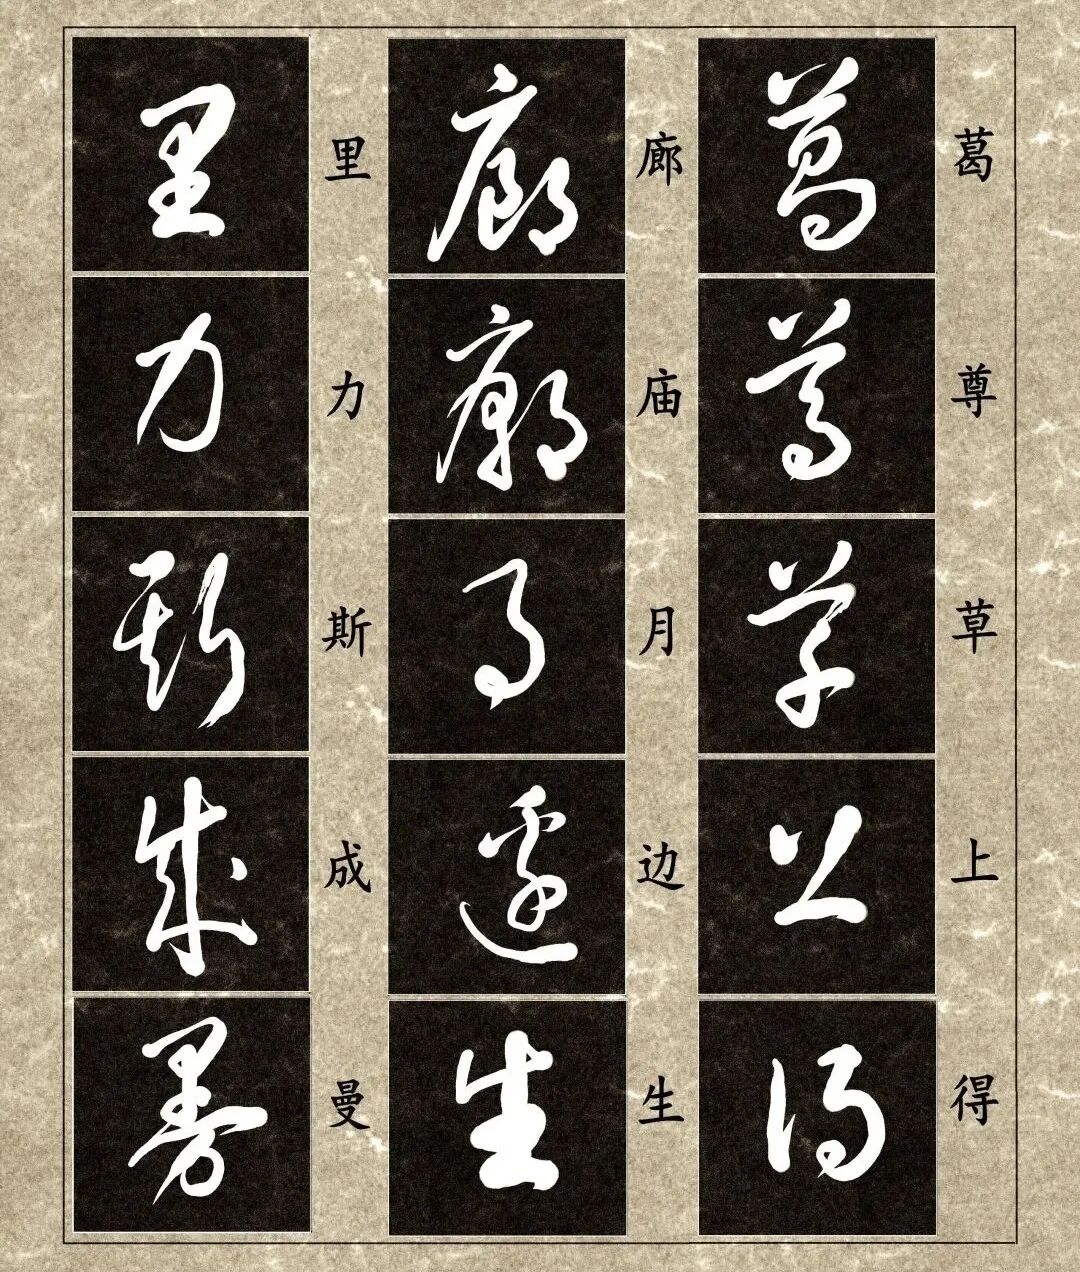 葛尊草上得
廊庙月边生
里力斯成曼